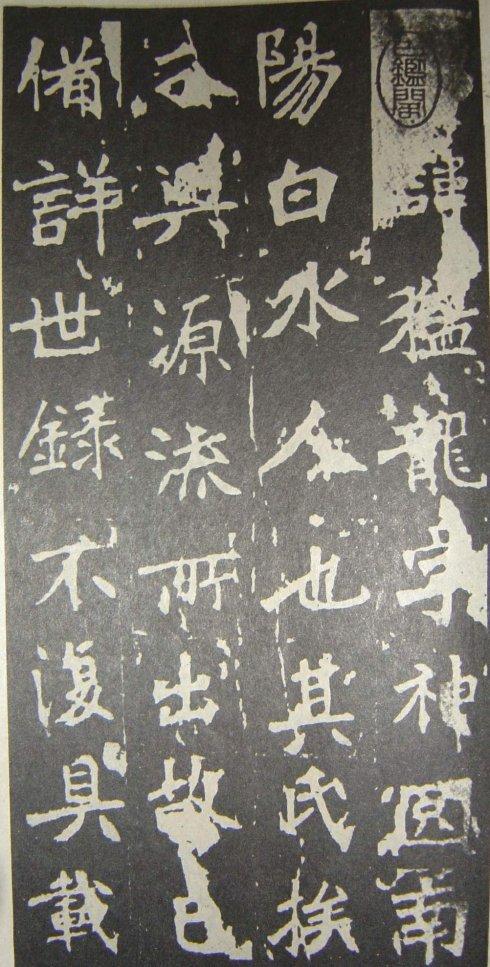 諱猛龍字神囧南
陽白水人也其氏族
分興源流所出故已
備詳世錄不復具載